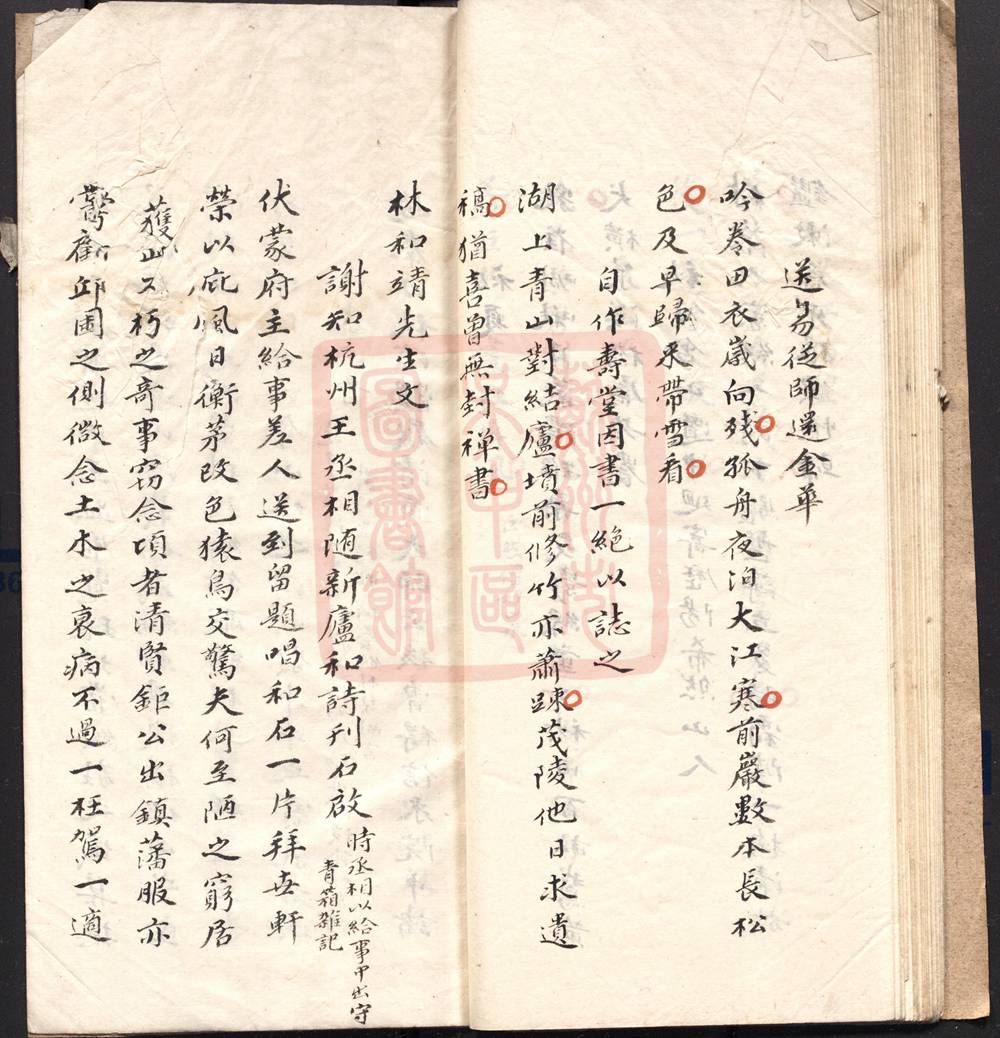 送易從師還金華
吟卷田衣歲向殘孤舟夜泊大江寒前巖數本長松
色及早歸來帶雪看
自作壽堂因書一絕以誌之
湖上青山對結廬墳前修竹亦蕭踈茂陵他日求遺
稿猶喜曾無封禅書
林和靖先生文
謝知杭州王丞相随新廬和詩刊石啟
時丞相以給事中出守
青箱雜記
伏蒙府主給事差人送到留題唱和石一片拜在軒
榮以庇風日衡茅改色猿鳥交驚夫何至陋之窮居
獲此不朽之奇事窃念項者清賢鉅公出鎮藩服亦
嘗顧邱園之側微念土木之衰病不過一枉駕一適
蘇州市
吳中區
圖書館